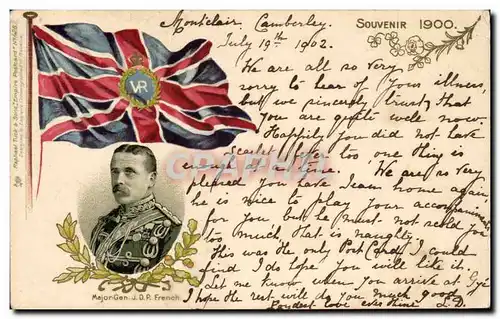 Souvenir 1900.
Montclair, Camberley.
July 19th 1902.
We are all so very
sorry to hear of your illness,
but we sincerely trust that
you are quite well now.
Happily you did not have
Scarlet fever too one thing is
enough at a time. We are so very
pleased you have Team home again,
he is nice to play your accompaniments
for you but he must not scold you
too much, that is naughty.
This was the only Post Card I could
find I do hope you will like it.
Let me know when you arrive at
I hope the rest will do you much good
Fondest love L.D.
VR
Major-Gen. J.D.P. French
Raphael Tuck & Sons' "Empire" Postcard